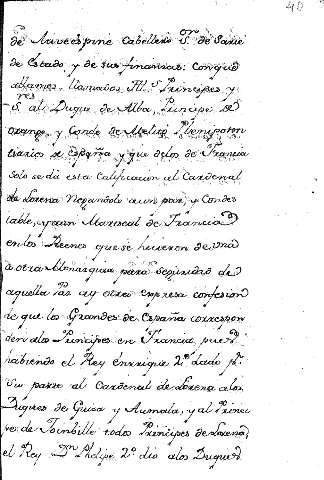 40
de Auvespine Cabellero Sr. de
de Estado y de sus finanzas: Conque
llamaños Alt.s Principes y
Sres. al Duque de Alba, Principe de
orange, y Conde de Melito Plenipoten
ciarios de España y que de los de Francia
solo se dà esta Calificacion al Cardenal
de Lorena Negandola a un par, y Condes
table, y a un Mariscal de Francia
en los Reenes que se hicieron de una
à otra Monarquia para seguridad de
aquella Paz ay otra expresa confesion
de que los Grandes de España correspon
den alos Principes en Francia pues
habiendo el Rey Enrrique 2º dado pr.
su parte al Cardenal de Lorena alos
Duques de Guisa y Aumala, y al Princi
pe de Joinbille todos Principes de Lorena
el Rey Dn. Phelipe 2º dio alos Duques